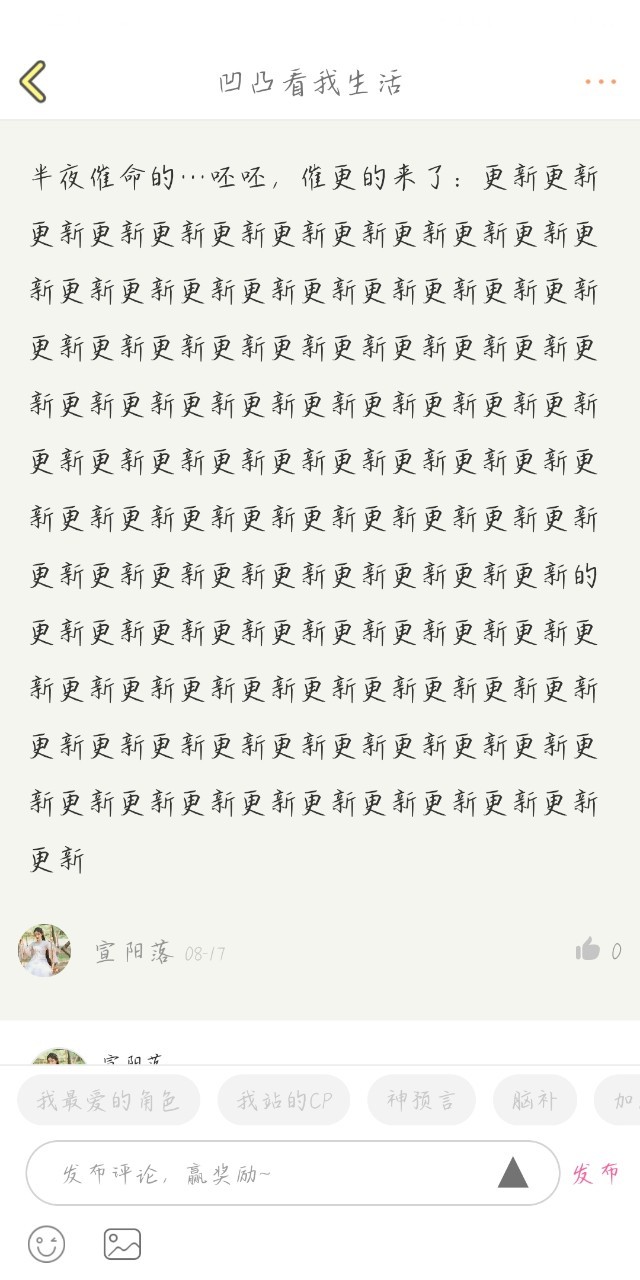 凹凸看我生活
半夜催命的…呸呸，催更的来了：更新更新
更新更新更新更新更新更新更新更新更新更
新更新更新更新更新更新更新更新更新更新
更新更新更新更新更新更新更新更新更新更
新更新更新更新更新更新更新更新更新更新
更新更新更新更新更新更新更新更新更新更
新更新更新更新更新更新更新更新更新更新
更新更新更新更新更新更新更新更新更新的
更新更新更新更新更新更新更新更新更新更
新更新更新更新更新更新更新更新更新更新
更新更新更新更新更新更新更新更新更新更
新更新更新更新更新更新更新更新更新更新
更新
宣阳落 08-17 0
宣阳落
我最爱的角色 我站的CP 神预言 脑补 加
发布评论，赢奖励~ 发布